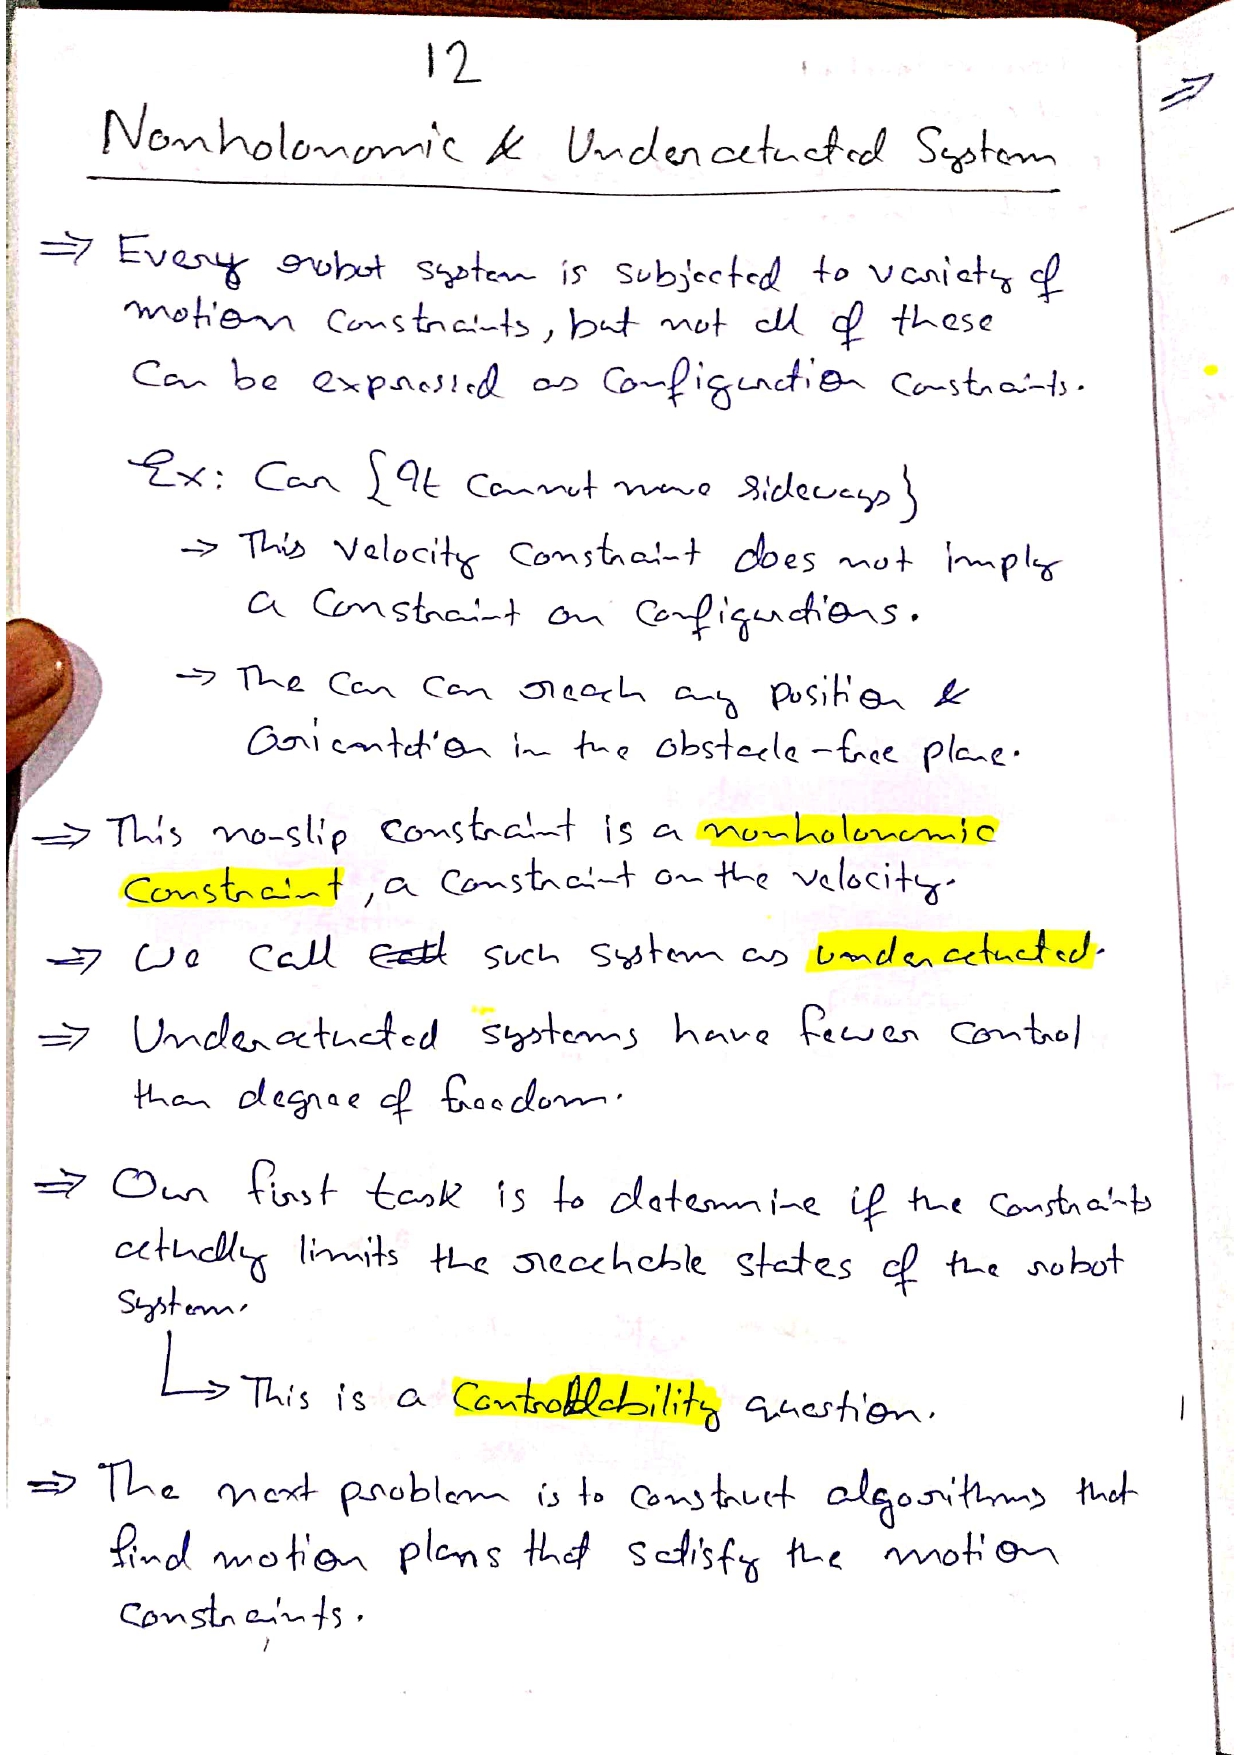 12
Nonholonomic & Underactuated System
⇒ Every robot system is subjected to variety of
motion constraints, but not all of these
Can be expressed as Configuration Constraints.
Ex: Car {It Cannot move sideways}
→ This Velocity Constraint does not imply
a Constraint on Configurations.
→ The Car can reach any position &
Orientation in the obstacle-free plane.
⇒ This no-slip constraint is a nonholonomic
Constraint, a Constraint on the velocity.
⇒ We call such system as underactuated.
⇒ Underactuated systems have fewer control
than degree of freedom.
⇒ Our first task is to determine if the constraints
actually limits the reachable states of the robot
System.
↳ This is a Controllability question.
⇒ The next problem is to construct algorithms that
find motion plans that satisfy the motion
constraints.
⇒